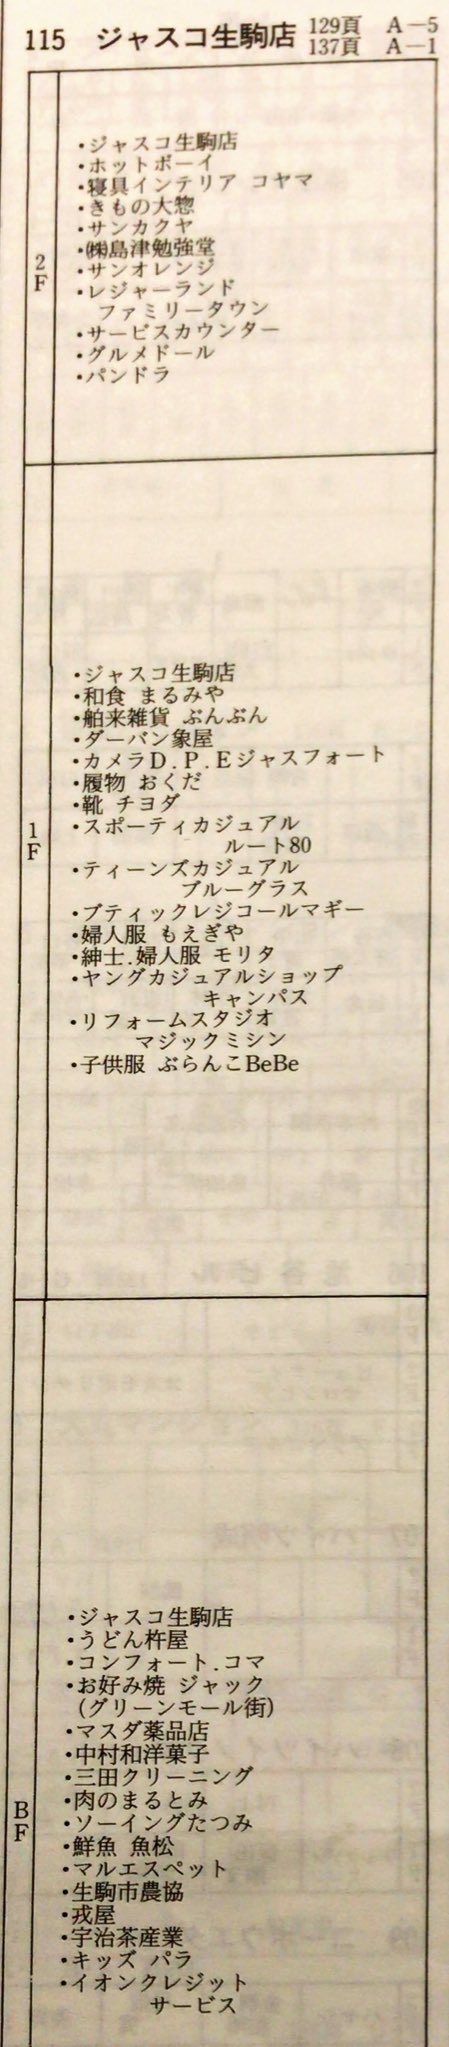 115 ジャスコ生駒店 129頁 A-5
137頁 A-1
2F
・ジャスコ生駒店
・ホットボーイ
・寝具インテリア コヤマ
・きもの大惣
・サンカクヤ
・㈱島津勉強堂
・サンオレンジ
・レジャーランド
ファミリータウン
・サービスカウンター
・グルメドール
・パンドラ
1F
・ジャスコ生駒店
・和食 まるみや
・舶来雑貨 ぶんぶん
・ダーバン象屋
・カメラD.P.Eジャスフォート
・履物 おくだ
・靴 チヨダ
・スポーティカジュアル
ルート80
・ティーンズカジュアル
ブルーグラス
・ブティックレジコールマギー
・婦人服 もえぎや
・紳士.婦人服 モリタ
・ヤングカジュアルショップ
キャンパス
・リフォームスタジオ
マジックミシン
・子供服 ぶらんこBeBe
BF
・ジャスコ生駒店
・うどん杵屋
・コンフォート.コマ
・お好み焼 ジャック
(グリーンモール街)
・マスダ薬品店
・中村和洋菓子
・三田クリーニング
・肉のまるとみ
・ソーイングたつみ
・鮮魚 魚松
・マルエスペット
・生駒市農協
・戎屋
・宇治茶産業
・キッズ パラ
・イオンクレジット
サービス